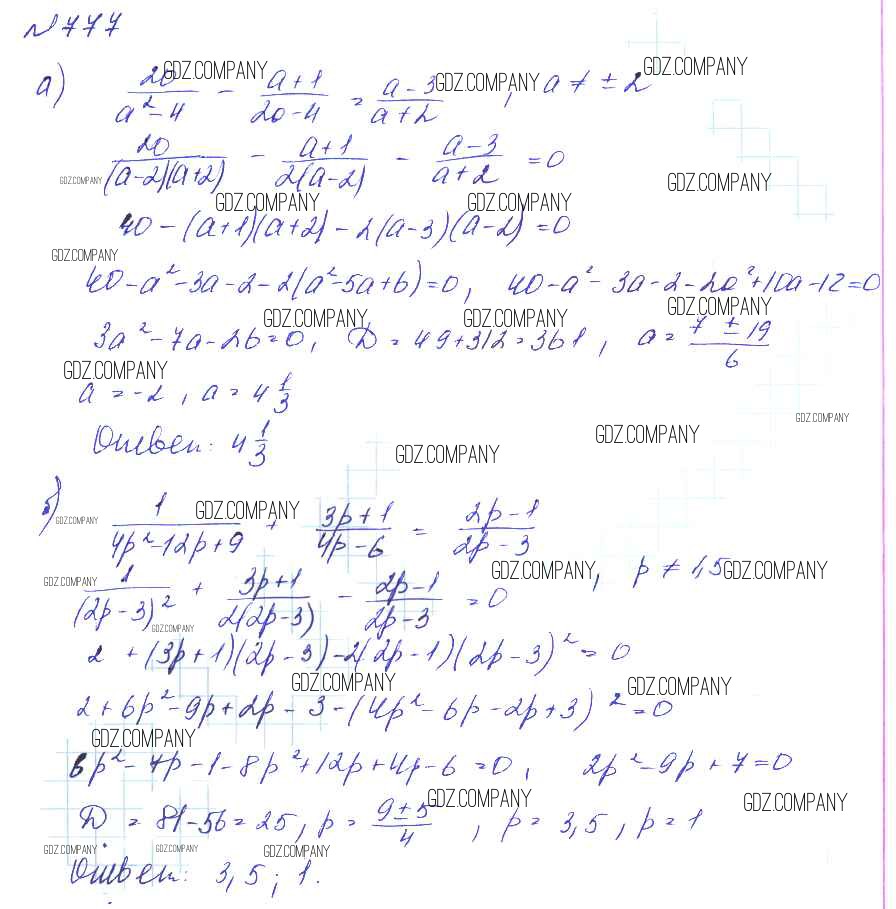 №777
а) 20/(a²-4) - (a+1)/(2a-4) = (a-3)/(a+2), a ≠ ±2
20/((a-2)(a+2)) - (a+1)/(2(a-2)) - (a-3)/(a+2) = 0
40-(a+1)(a+2)-2(a-3)(a-2)=0
40-a²-3a-2-2(a²-5a+6)=0, 40-a²-3a-2-2a²+10a-12=0
3a²-7a-26=0, D=49+312=361, a=(7±19)/6
a=-2, a=4 1/3
Ответ: 4 1/3
б) 1/(4p²-12p+9) + (3p+1)/(4p-6) = (2p-1)/(2p-3)
1/(2p-3)² + (3p+1)/(2(2p-3)) - (2p-1)/(2p-3) = 0, p ≠ 1,5
2+(3p+1)(2p-3)-2(2p-1)(2p-3)²=0
2+6p²-9p+2p-3-(4p²-6p-2p+3)²=0
6p²-7p-1-8p²+12p+4p-6=0, 2p²-9p+7=0
D=81-56=25, p=(9±5)/4, p=3,5, p=1
Ответ: 3,5; 1.
GDZ.COMPANY